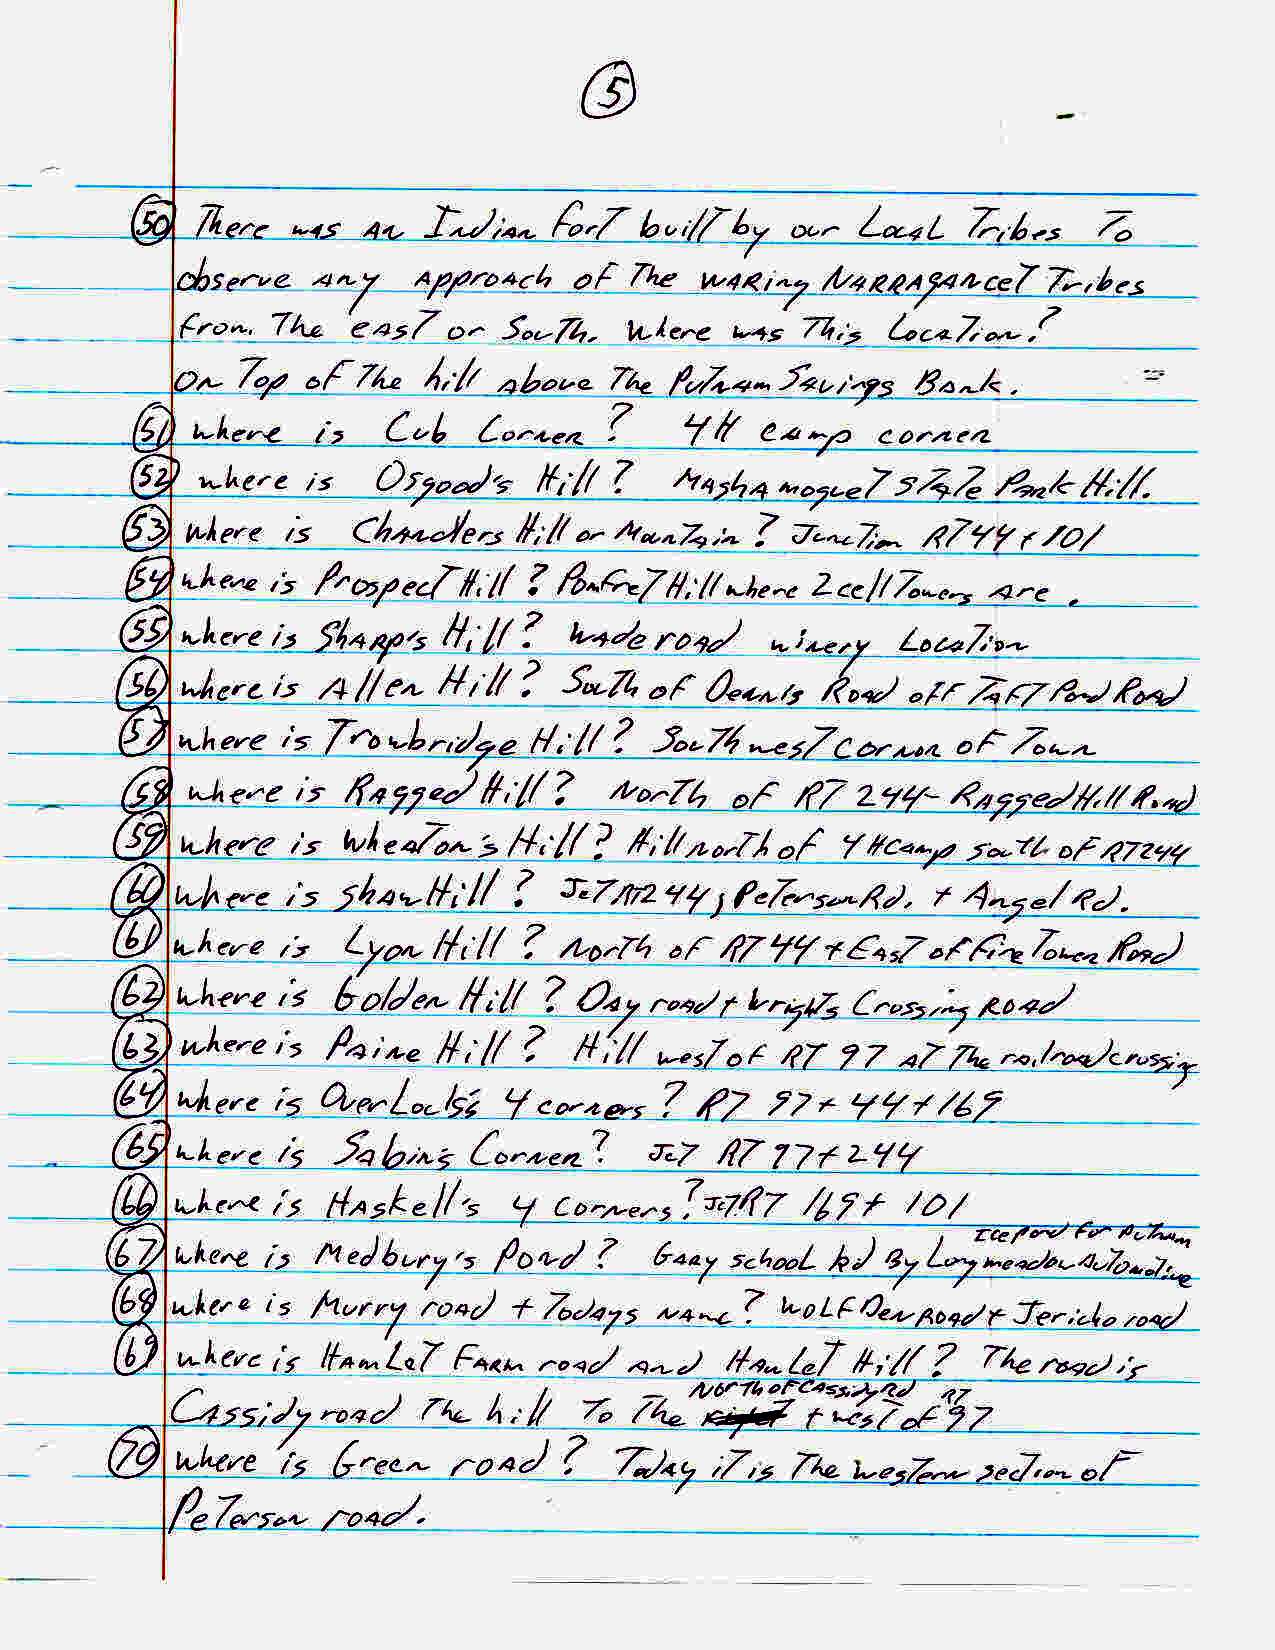 5
50 There was an Indian fort built by our Local Tribes To
observe any approach of The waring Narragancet Tribes
from The east or South. Where was This Location?
On Top of The hill above The Putnam Savings Bank.
51 where is Cub Corner? 4H camp corner
52 where is Osgood's Hill? Mashamoquet State Park Hill.
53 where is Chandlers Hill or Mountain? Junction RT 44 + 101
54 where is Prospect Hill? Pomfret Hill where 2 cell Towers are.
55 where is Sharp's Hill? Wade road winery Location
56 where is Allen Hill? South of Dennis Road off Taft Pond Road
57 where is Trowbridge Hill? Southwest cornor of Town
58 where is Ragged Hill? North of RT 244 - Ragged Hill Road
59 where is Wheaton's Hill? Hill north of 4H camp south of RT 244
60 where is Shaw Hill? Jct RT 244, Peterson Rd. + Angel Rd.
61 where is Lyon Hill? North of RT 44 + East of Fire Tower Road
62 where is Golden Hill? Day road + Wrights Crossing Road
63 where is Paine Hill? Hill west of RT 97 at The railroad crossing
64 where is Overlock's 4 corners? RT 97 + 44 + 169
65 where is Sabin's Corner? Jct RT 97 + 244
66 where is Haskell's 4 corners? Jct RT 169 + 101
Ice pond for Putnam
67 where is Medbury's Pond? Gary school Rd By Longmeadow Automotive
68 where is Murry road + Todays name? Wolf Den Road + Jericho road
69 where is Hamlet Farm road and Hamlet Hill? The road is
North of Cassidy Rd RT
Cassidy road The hill To The + west of 97
70 where is Green road? Today it is The western section of
Peterson road.